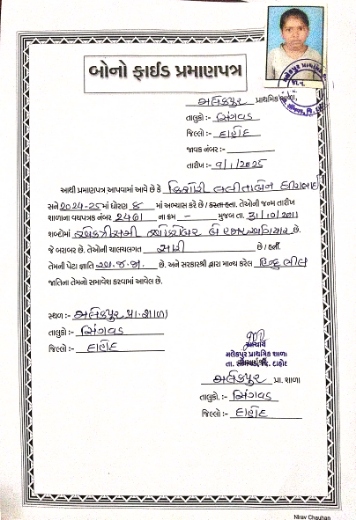 બોનો ફાઈડ પ્રમાણપત્ર
મલેકપુર પ્રાથમિક શાળા,
તાલુકો :- સિંગવડ
જિલ્લો :- દાહોદ
જાવક નંબર :-
તારીખ :- 9/1/2025
આથી પ્રમાણપત્ર આપવામાં આવે છે કે કિશોરી લલીતાબેન
સને 2024-25 માં ધોરણ 8 માં અભ્યાસ કરે છે / કરતા હતા. તેઓની જન્મ તારીખ
શાળાના વયપત્રક નંબર 2461 ના ક્રમ – મુજબ તા. 31/10/2011
શબ્દોમાં એકત્રીસમી ઓક્ટોબર બે હજાર અગિયાર છે.
જે બરાબર છે. તેઓની ચાલચલગત સારી છે / હતી.
તેમની પેટા જ્ઞાતિ અ.જ.જા. છે. અને સરકારશ્રી દ્વારા માન્ય કરેલ હિન્દુ ભીલ
જાતિના તેમનો સમાવેશ કરવામાં આવેલ છે.
સ્થળ :- મલેકપુર પ્રા.શાળા
તાલુકો :- સિંગવડ
જિલ્લો :- દાહોદ
આચાર્ય
મલેકપુર પ્રાથમિક શાળા
તા. સીંગવડ, જિ. દાહોદ
મલેકપુર પ્રા. શાળા
તાલુકો. :- સિંગવડ
જિલ્લો :- દાહોદ
Nirav Chauhan